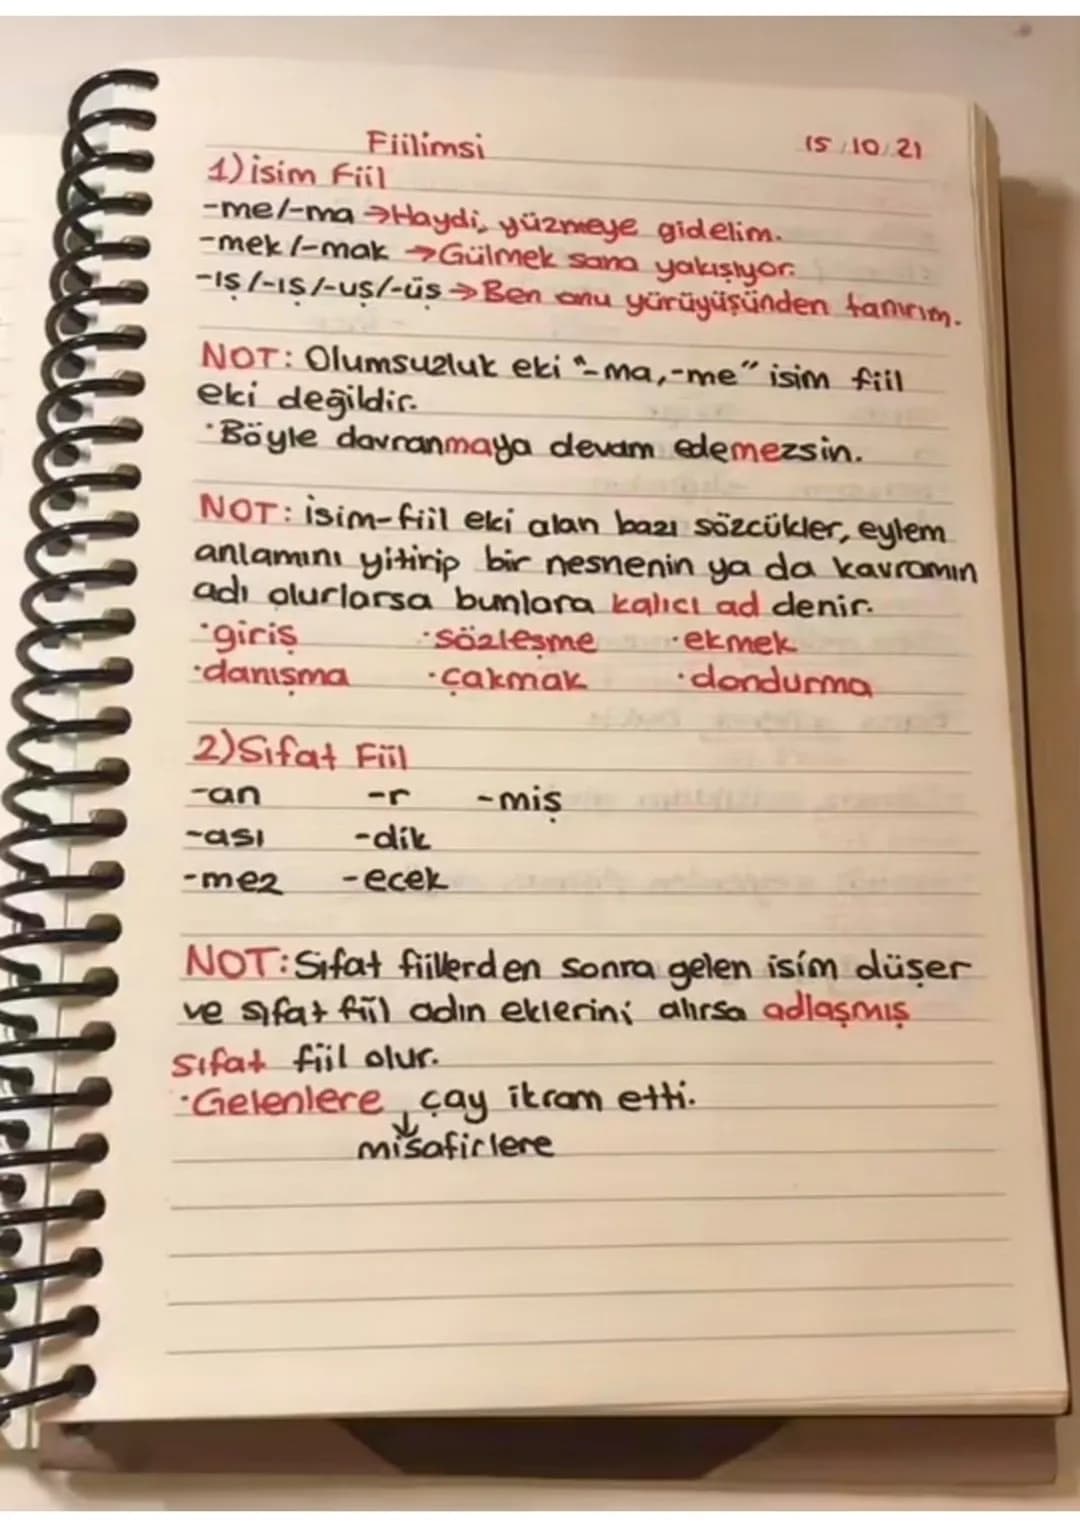 Fiilimsi 15/10/21
1) isim Fiil
-me/-ma →Haydi, yüzmeye gidelim.
-mek/-mak →Gülmek sana yakışıyor.
-iş/-ış/-uş/-üş →Ben onu yürüyüşünden tanırım.
NOT: Olumsuzluk eki "-ma,-me" isim fiil
eki değildir.
·Böyle davranmaya devam edemezsin.
NOT: isim-fiil eki alan bazı sözcükler, eylem
anlamını yitirip bir nesnenin ya da kavramın
adı olurlarsa bunlara kalıcı ad denir.
·giriş ·sözleşme ·ekmek
·danışma ·çakmak ·dondurma
2)Sıfat Fiil
-an -r -miş
-ası -dik
-mez -ecek
NOT: Sıfat fiillerden sonra gelen isim düşer
ve sıfat fiil adın eklerini alırsa adlaşmış
sıfat fiil olur.
·Gelenlere çay ikram etti.
↓
misafirlere